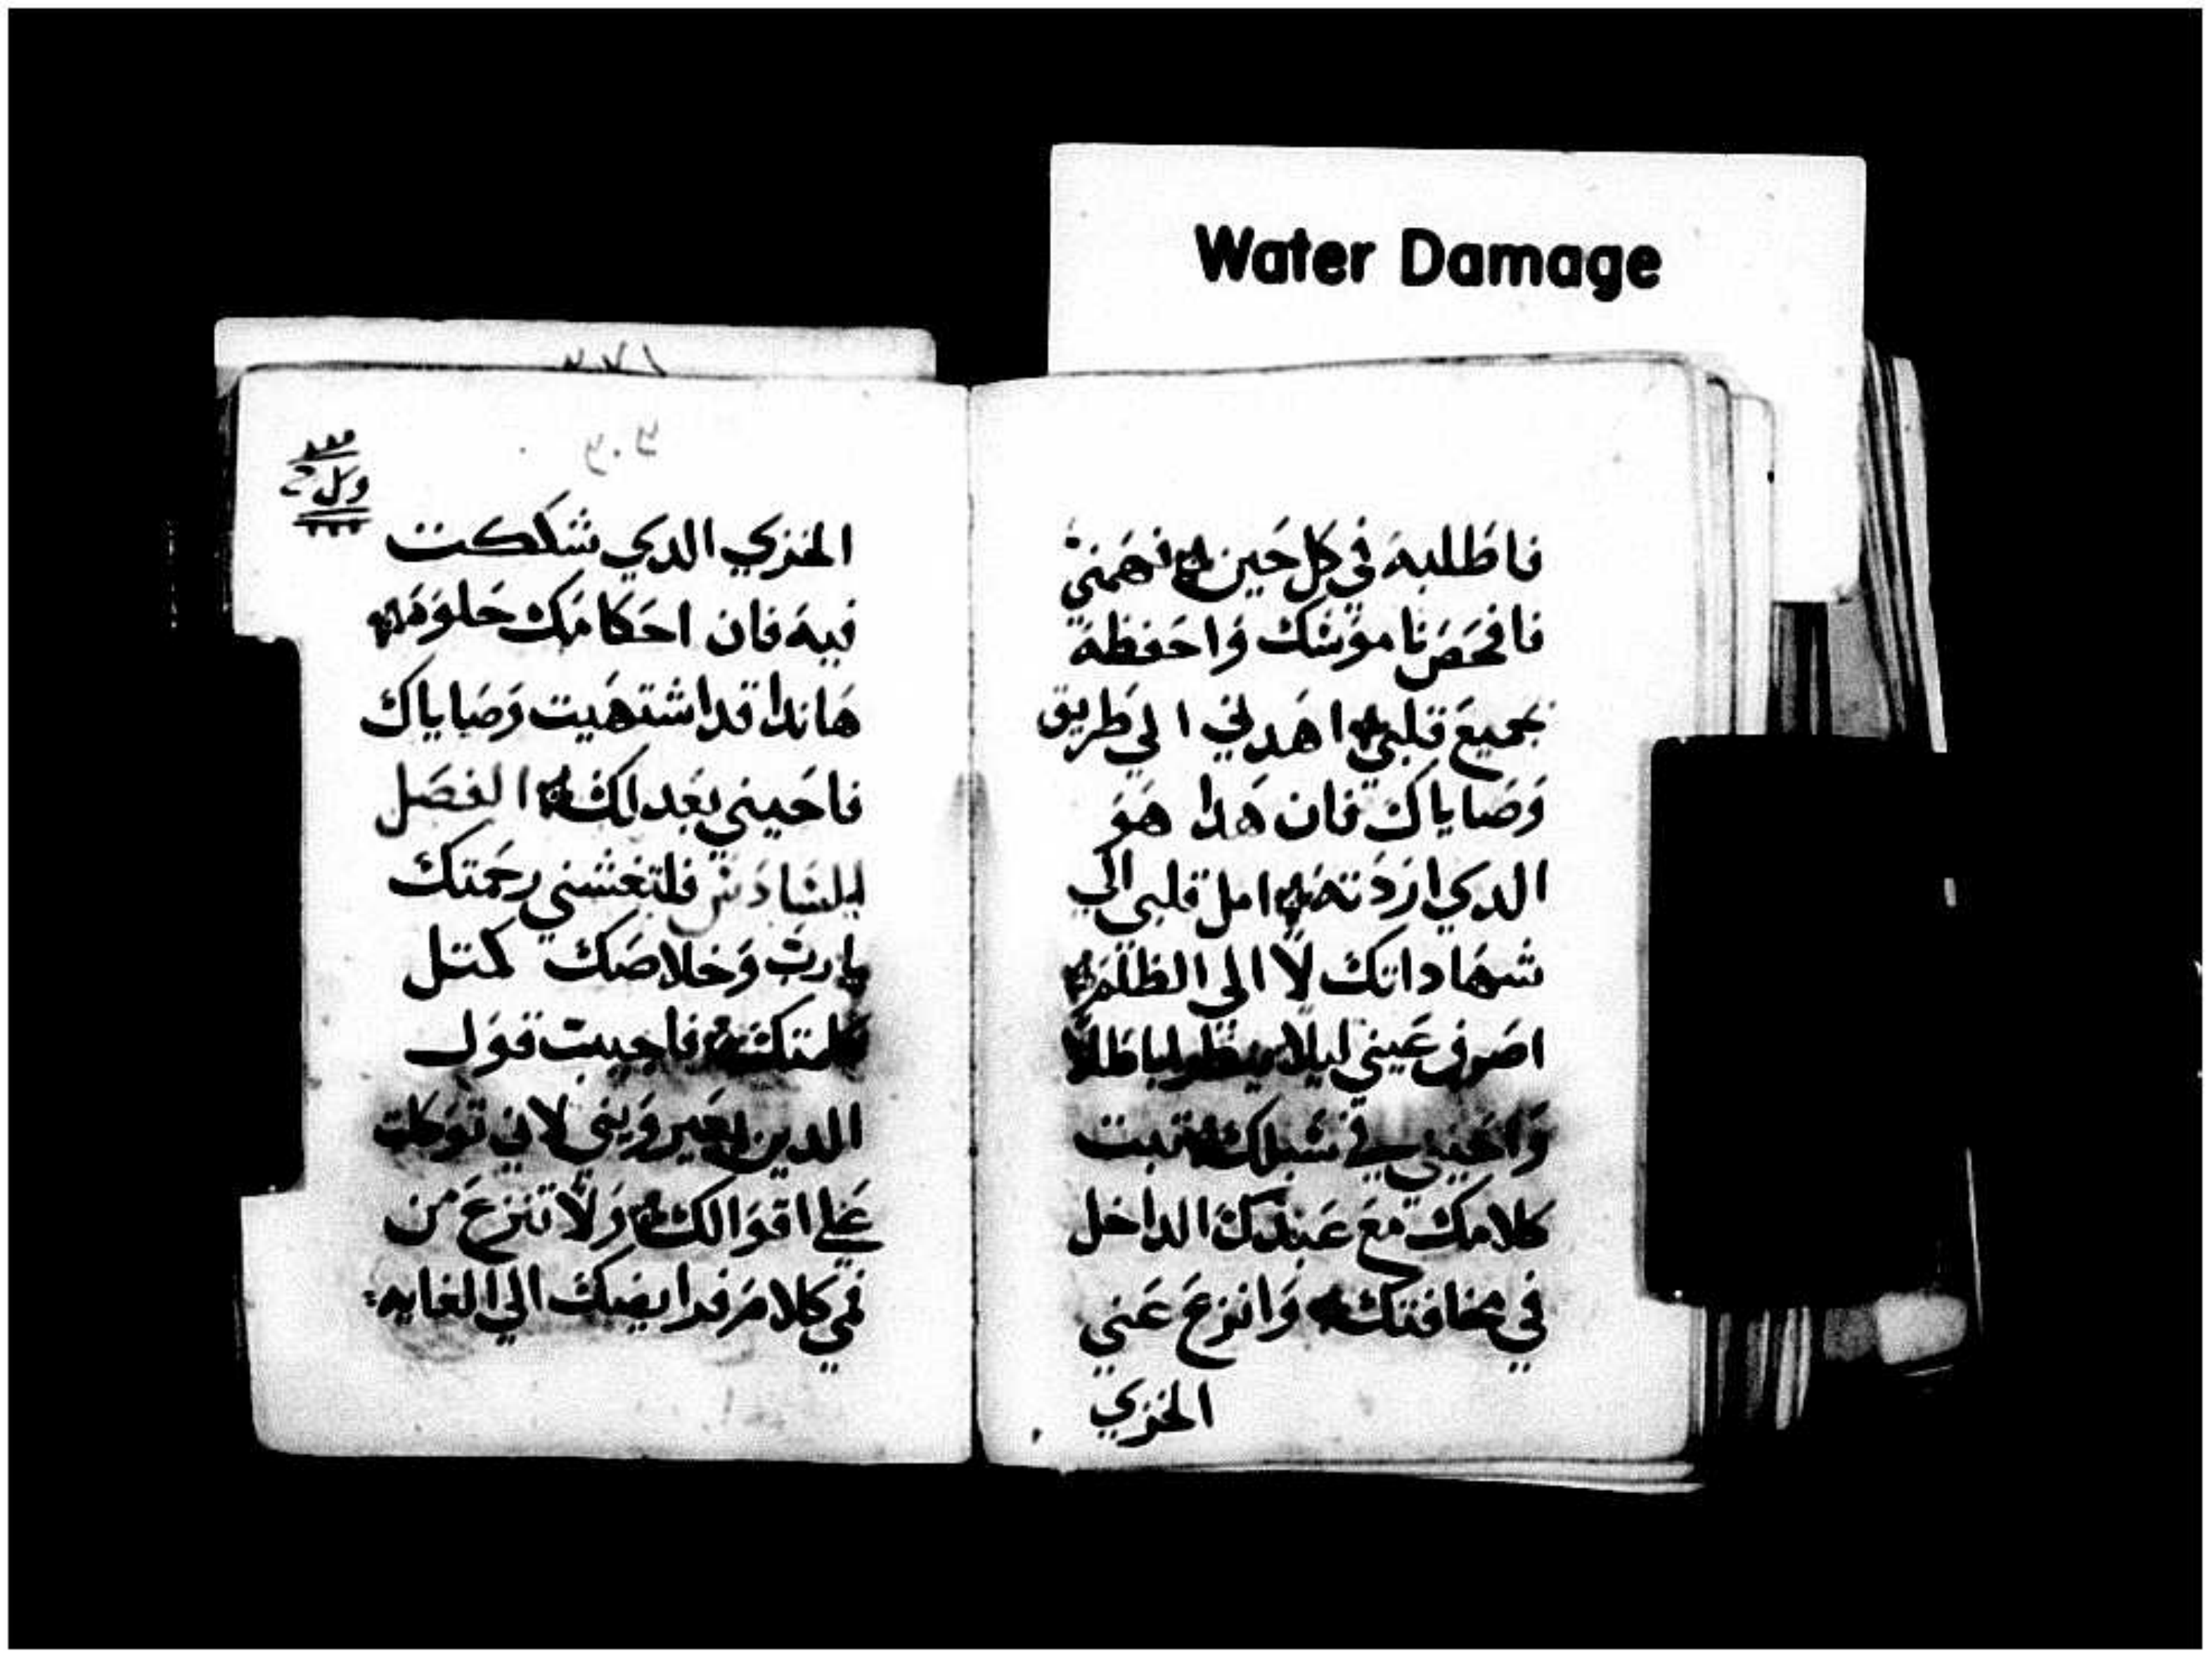 Water Damage
فاطلبه في كل حين افهمني
فافحص ناموسك واحفظه
بجميع قلبي اهدني الي طريق
وصاياك فان هدا هو
الدي اردته امل قلبي الي
شهاداتك لا الي الظلم
اصرف عيني ليلا ينظرا باطلا
واحيني في سبلك تبت
كلامك مع عبدك الداخل
في مخافتك وانزع عني
الخزي
الخزي الدي شككت
فيه فان احكامك حلوه
هاندا قد اشتهيت وصاياك
فاحيني بعدلك الفصل
السادس فلتغشني رحمتك
يارب وخلاصك كمتل
كلمتك فاجيب قول
الدين يعيروني لاني توكلت
علي اقوالك ولا تنزع من
فمي كلام فرايضك الي الغايه